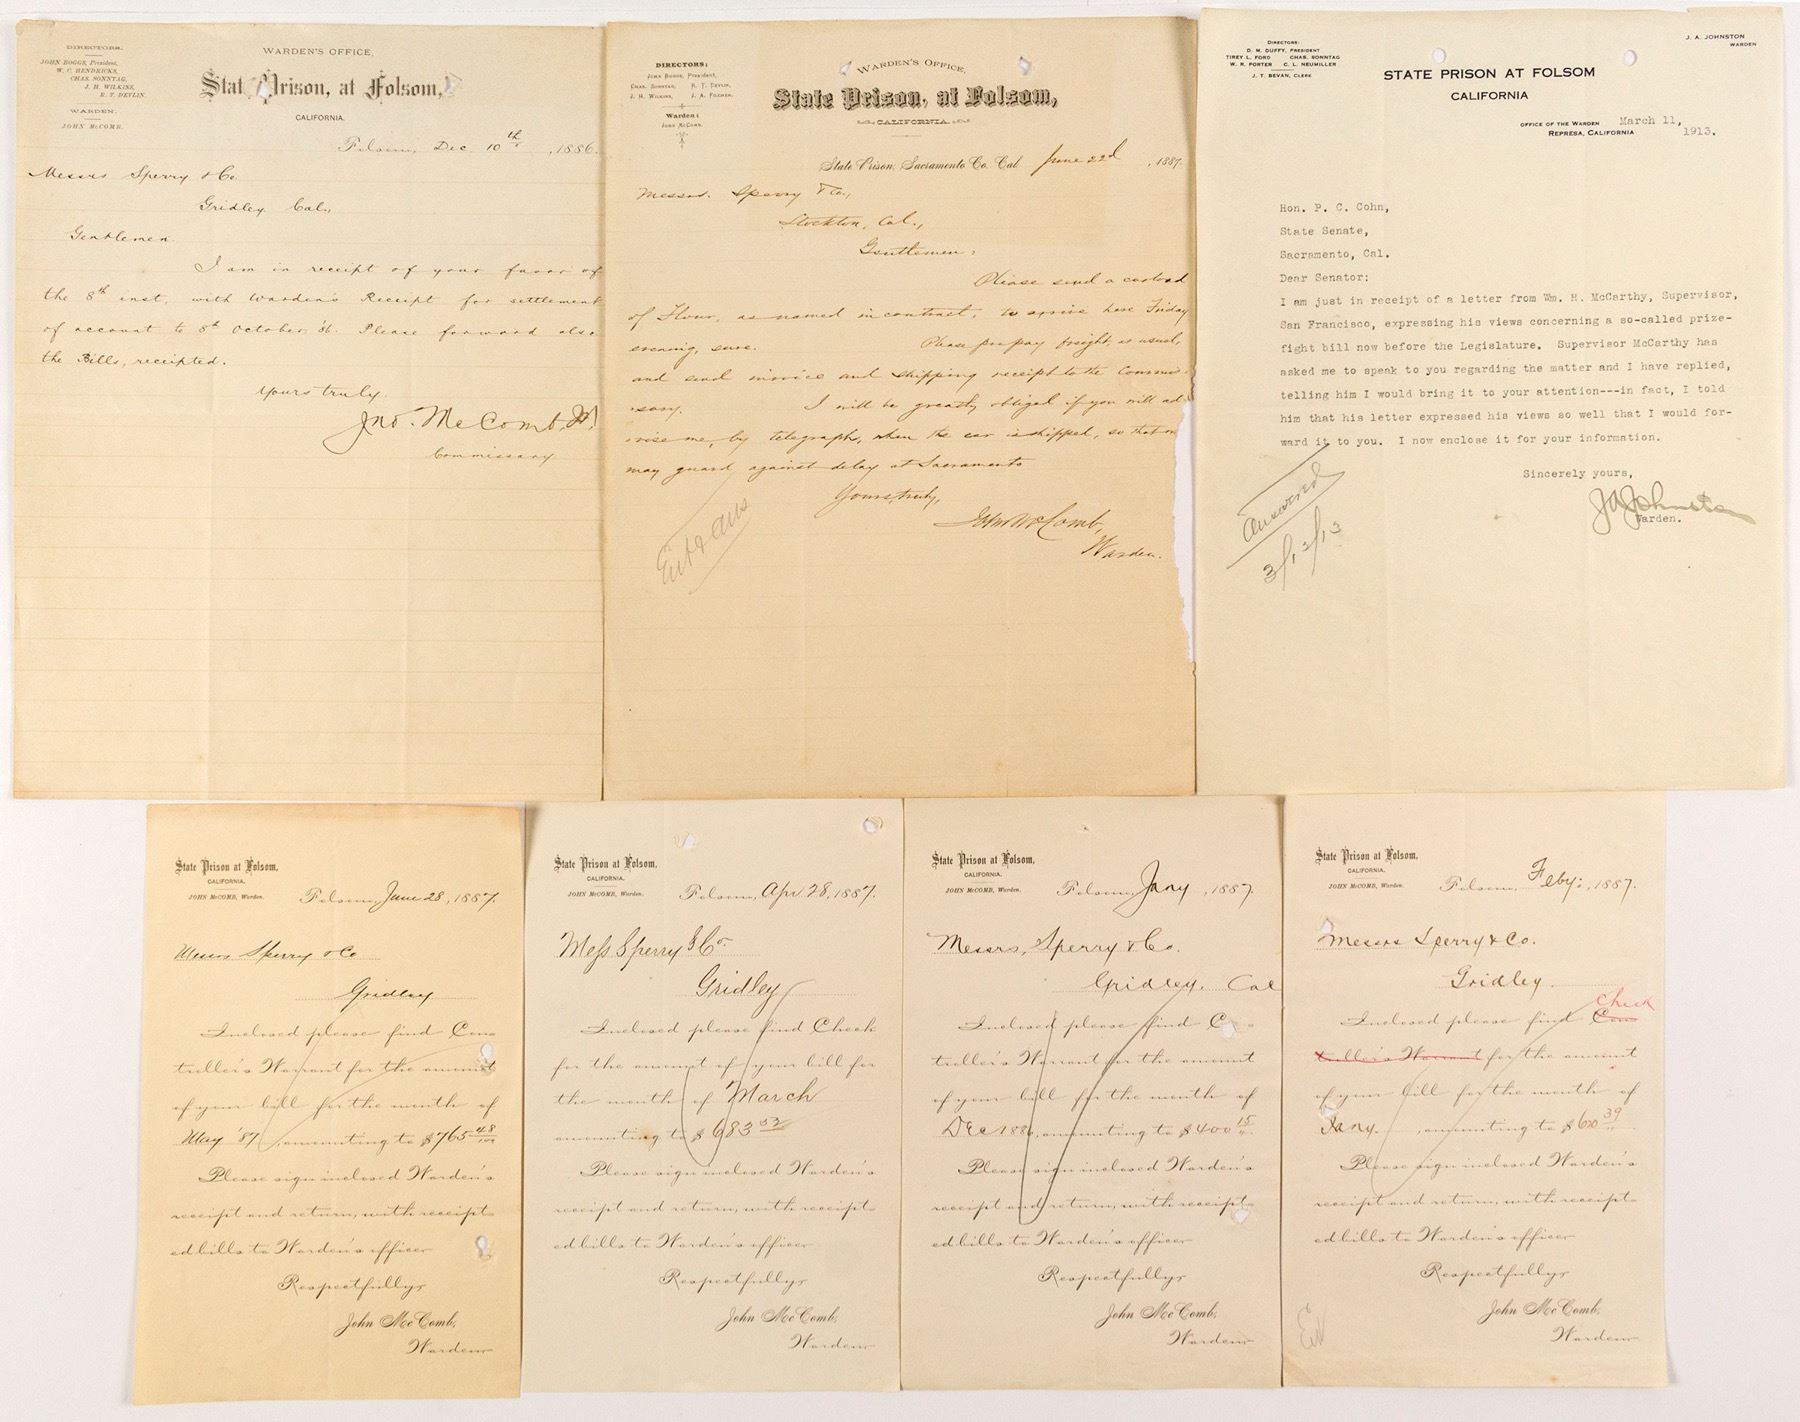 DIRECTORS.
JOHN BOGGS, President,
W. C. HENDRICKS,
CHAS. SONNTAG,
J. H. WILKINS,
R. T. DEVLIN.
WARDEN:
JOHN McCOMB.
WARDEN'S OFFICE,
Stat Prison, at Folsom,
CALIFORNIA.
Folsom, Dec. 10th, 1886.
Messrs Sperry & Co.
Gridley. Cal.,
Gentlemen.
I am in receipt of your favor of
the 8th inst, with Warden's Receipt for settlement
of account to 8th October, '86. Please forward also
the Bills, receipted.
Yours truly.
Jno. McComb, Jr.
Commissary
DIRECTORS:
John Boggs, President,
Chas. Sonntag, R. T. Devlin,
J. H. Wilkins, J. A. Filcher.
Warden:
John McComb.
WARDEN'S OFFICE,
State Prison, at Folsom,
CALIFORNIA.
State Prison, Sacramento Co. Cal June 22d, 1887.
Messrs. Sperry & Co.,
Stockton, Cal.,
Gentlemen:
Please send a carload
of Flour, as named in contract, to arrive here Friday
evening, sure. Please prepay freight, as usual,
and send invoice and shipping receipt to the Commis-
sary. I will be greatly obliged if you will ad
vise me, by telegraph, when the car is shipped, so that
may guard against delay at Sacramento
Yours, truly,
John McComb,
Warden.
Ent & ans
DIRECTORS:
D. M. DUFFY, PRESIDENT
TIREY L. FORD CHAS. SONNTAG
W. R. PORTER C. L. NEUMILLER
J. T. BEVAN, CLERK
J. A. JOHNSTON
WARDEN
STATE PRISON AT FOLSOM
CALIFORNIA
OFFICE OF THE WARDEN
REPRESA, CALIFORNIA
March 11,
1913.
Hon. P. C. Cohn,
State Senate,
Sacramento, Cal.
Dear Senator:
I am just in receipt of a letter from Wm. H. McCarthy, Supervisor,
San Francisco, expressing his views concerning a so-called prize-
fight bill now before the Legislature. Supervisor McCarthy has
asked me to speak to you regarding the matter and I have replied,
telling him I would bring it to your attention---in fact, I told
him that his letter expressed his views so well that I would for-
ward it to you. I now enclose it for your information.
Sincerely yours,
J A Johnston
Warden.
Answered
3/12/13
State Prison at Folsom,
CALIFORNIA.
JOHN McCOMB, Warden.
Folsom, June 28, 1887.
Messrs Sperry & Co
Gridley
Inclosed please find Con-
troller's Warrant for the amount
of your bill for the month of
May '87, amounting to $765 48/100
Please sign inclosed Warden's
receipt and return, with receipt-
ed bills to Warden's office
Respectfully,
John McComb,
Warden
State Prison at Folsom,
CALIFORNIA.
JOHN McCOMB, Warden.
Folsom, Apr 28, 1887.
Mess Sperry & Co
Gridley
Inclosed please find Check
for the amount of your bill for
the month of March
amounting to $683 52
Please sign inclosed Warden's
receipt and return, with receipt-
ed bills to Warden's office
Respectfully,
John McComb,
Warden
State Prison at Folsom,
CALIFORNIA.
JOHN McCOMB, Warden.
Folsom, Jany, 1887
Messrs, Sperry & Co.
Gridley. Cal
Inclosed please find Con-
troller's Warrant for the amount
of your bill for the month of
Dec 1886, amounting to $400 15
Please sign inclosed Warden's
receipt and return, with receipt-
ed bills to Warden's office
Respectfully,
John McComb,
Warden
State Prison at Folsom,
CALIFORNIA.
JOHN McCOMB, Warden.
Folsom, Feby:, 1887.
Messrs Sperry & Co.
Gridley.
Check
Inclosed please find Con-
troller's Warrant for the amount
of your bill for the month of
Jany., amounting to $620 39
Please sign inclosed Warden's
receipt and return, with receipt-
ed bills to Warden's office
Respectfully,
John McComb,
Warden
Ent